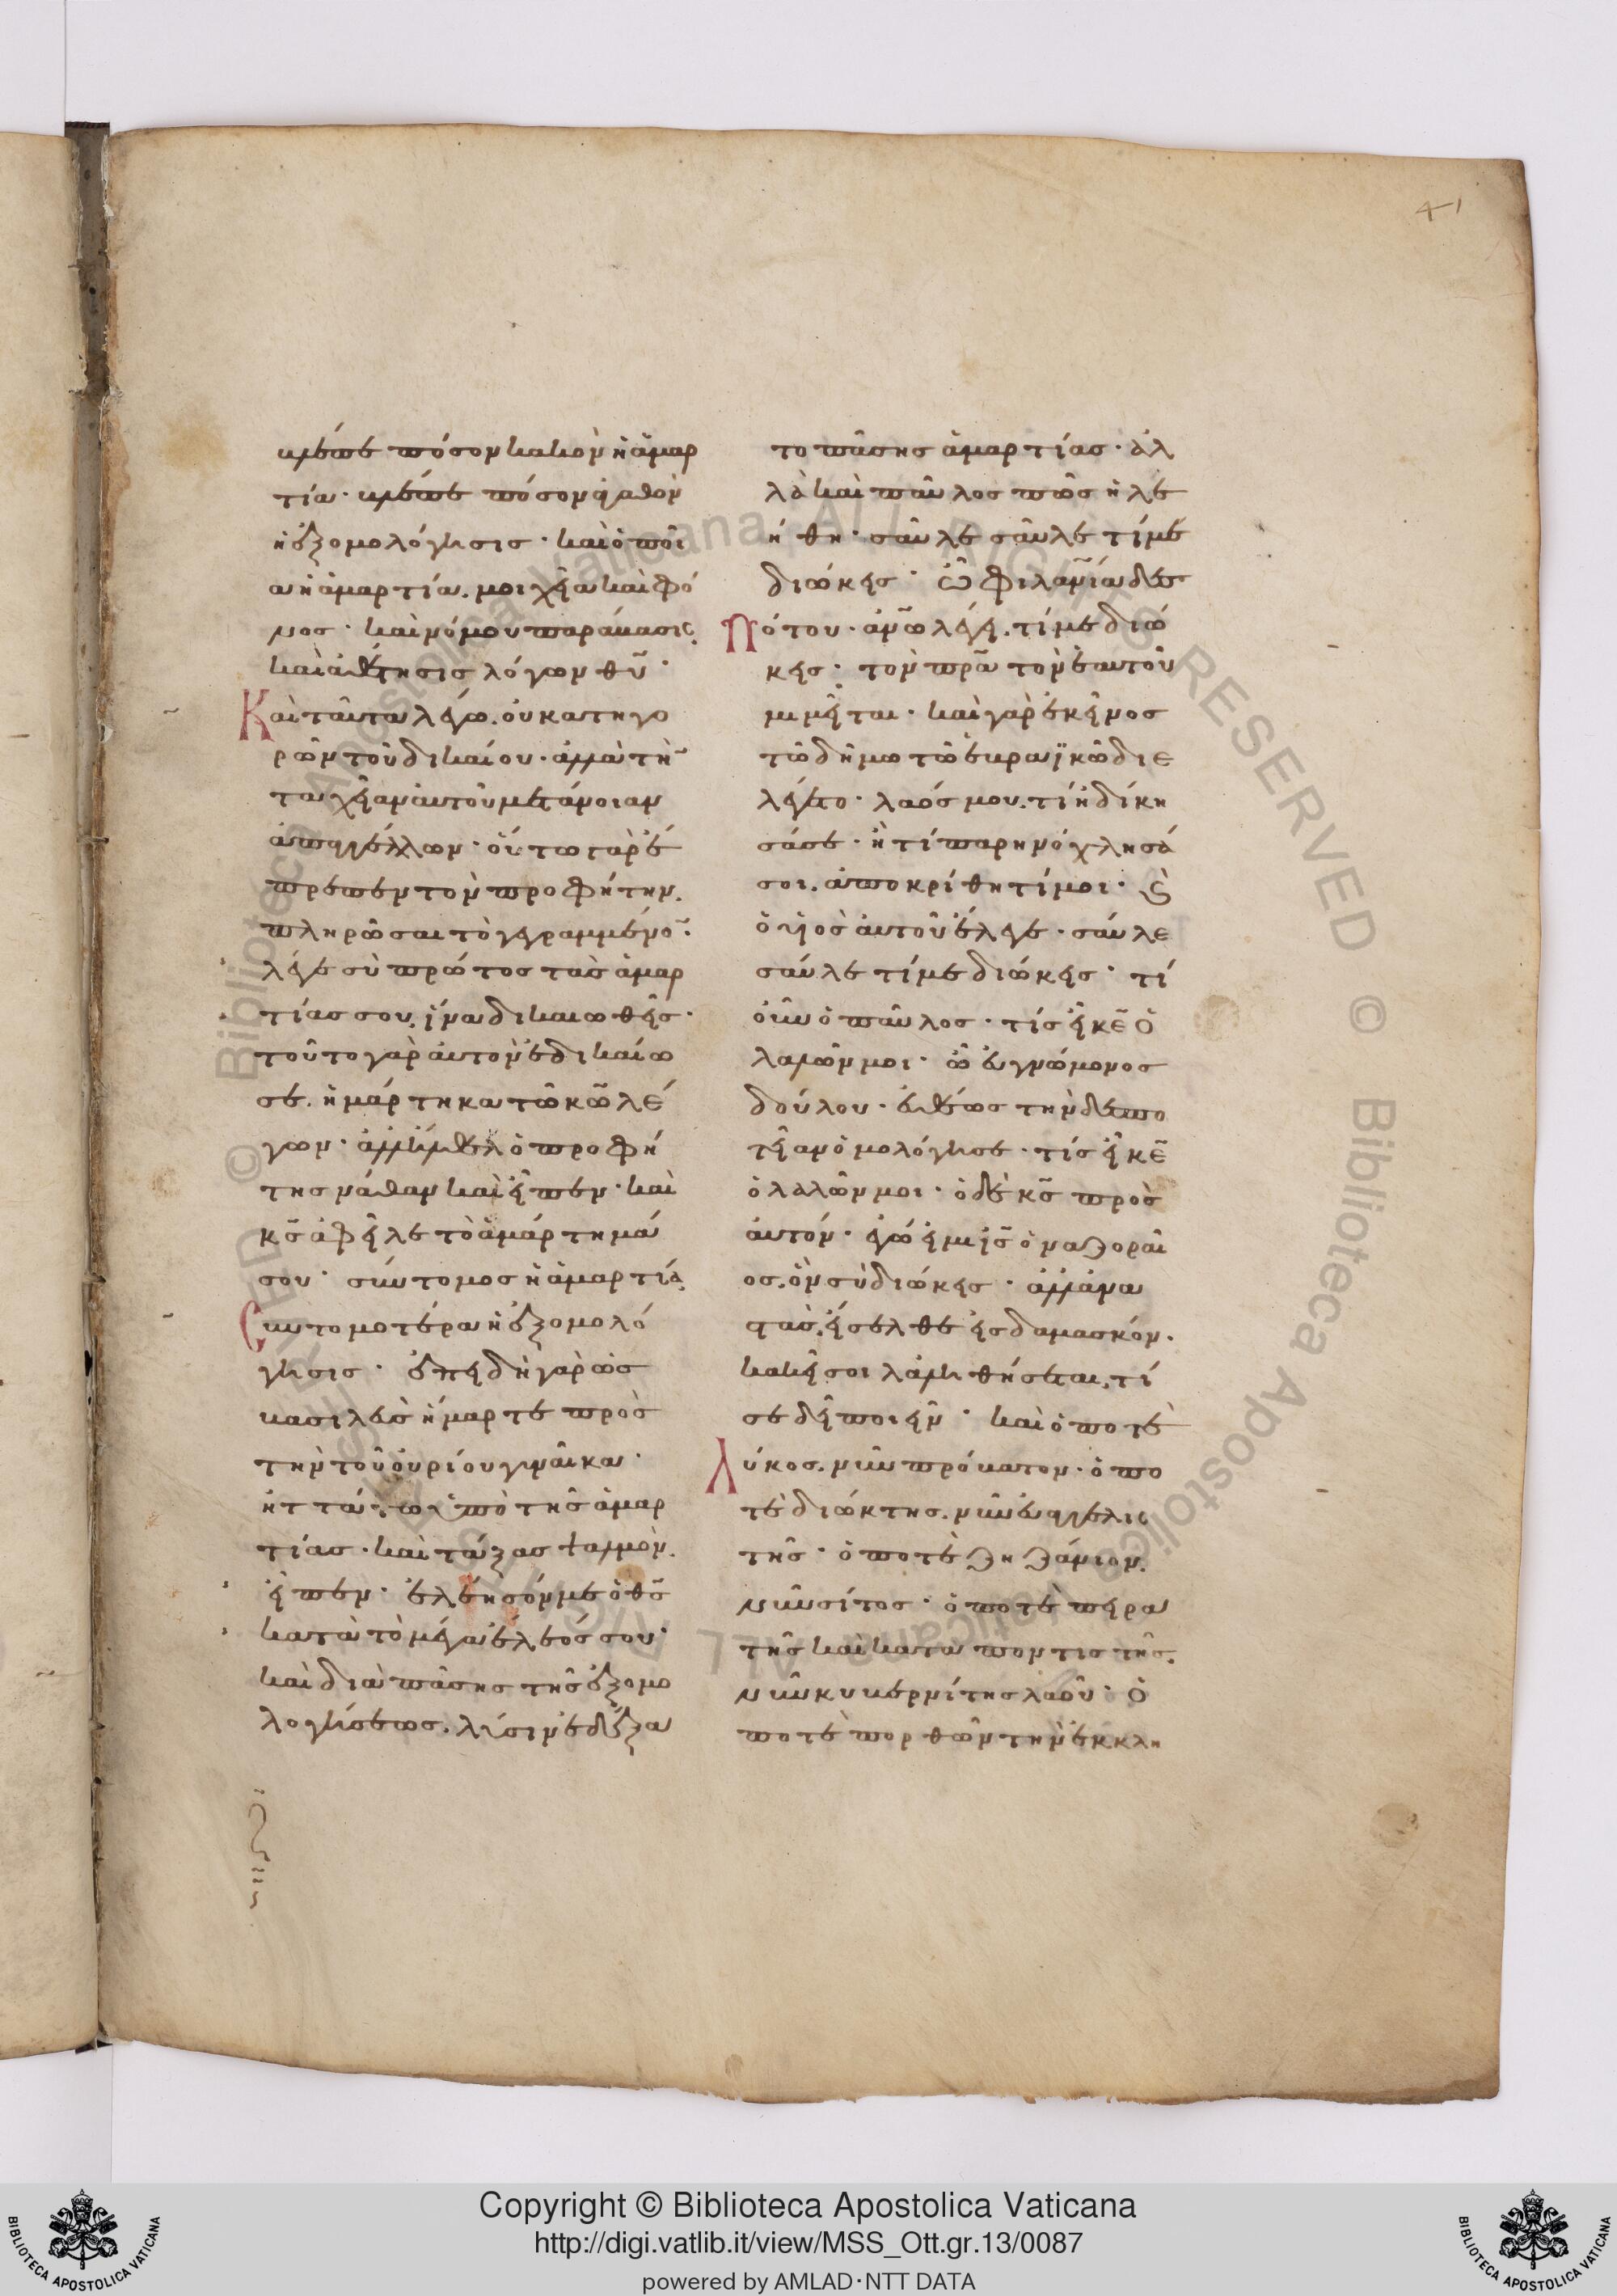 41
βλέπε πόσον κακὸν ἡ ἁμαρ
τία· βλέπε πόσον ἀγαθὸν
ἡ ἐξομολόγησις· καὶ ὁποῖ
α ἡ ἁμαρτία. μοιχεία καὶ φό
νος· καὶ νόμου παράβασις.
καὶ ἀθέτησις λόγων θυ·
Καὶ ταῦτα λέγω. οὐ κατηγο
ρῶν τοῦ δικαίου· ἀλλὰ τὴν
ταχεῖαν αὐτοῦ μετάνοιαν
ἀπαγγέλλων· οὕτω γὰρ ἔ
πρεπεν τὸν προφήτην.
πληρῶσαι τὸ γεγραμμένον·
λέγε σὺ πρῶτος τὰς ἁμαρ
τίας σου. ἵνα δικαιωθεῖς·
τοῦτο γὰρ αὐτὸν ἐδικαίω
σε. ἡμάρτηκα τῶ κω λέ
γων· ὁ προφή
της νάθαν καὶ εἶπεν· καὶ
κς ἀφεῖλε τὸ ἁμάρτημά
σου· σύντομος ἡ ἁμαρτία.
Συντομοτέρα ἡ ἐξομολό
γησις· ἐπειδὴ γὰρ ὡς
βασιλεὺς ἥμαρτε πρὸς
τὴν τοῦ οὐρίου γυναῖκα·
ὑπὸ τῆς ἁμαρ
τίας· καὶ τάξας ψαλμὸν.
εἶπεν· ἐλέησόν με ὁ θς
κατὰ τὸ μέγα ἔλεός σου·
καὶ διὰ πάσης τῆς ἐξομο
λογήσεως. λύσιν ἐδέξα
το πάσης ἁμαρτίας· ἀλ
λὰ καὶ παῦλος πῶς ἠλε
ήθη· σαῦλε σαῦλε τί με
διώκεις· ὢ φιλανίαν δεσ
Πότου· ἄνω λέγει. τί με διώ
κεις· τὸν πρα τὸν ἑαυτοῦ
μιμεῖται· καὶ γὰρ ἐκεῖνος
τῶ δήμω τῶ ἑβραϊκῶ διε
λέγετο· λαός μου. τί ἠδίκη
σά σε· ἢ τί παρηνόχλησά
σοι. ἀποκρίθητί μοι· καὶ
ὁ υἱὸς αὐτοῦ ἔλεγε· σαῦλε
σαῦλε τί με διώκεις· τί
οὖν ὁ παῦλος· τίς εἶ κε ὁ
λαλῶν μοι· ὢ εὐγνώμονος
δούλου· εὐθέως τὴν δεσπο
τείαν ὁμολόγησε· τίς εἶ κε
ὁ λαλῶν μοι· ὁ δὲ κς πρὸς
αὐτόν· ἐγώ εἰμι ις ὁ ναζοραῖ
ος. ὃν σὺ διώκεις· ἀλλ' ἀνα
στὰς. εἴσελθε εἰς δαμασκόν.
κἀκεῖ σοι λαληθήσεται. τί
σε δεῖ ποιεῖν· καὶ ὁ ποτὲ
Λύκος. νῦν πρόβατον· ὁ πο
τὲ διώκτης. νῦν εὐαγγελισ
τής· ὁ ποτὲ ζηζάνιον.
νῦν σίτος· ὁ ποτὲ πειρα
τὴς καὶ καταποντιστής.
νῦν κυβερνίτης λαοῦ· ὁ
ποτὲ πορθῶν τὴν ἐκκλη
Copyright © Biblioteca Apostolica Vaticana
http://digi.vatlib.it/view/MSS_Ott.gr.13/0087
powered by AMLAD·NTT DATA
BIBLIOTECA APOSTOLICA VATICANA
BIBLIOTECA APOSTOLICA VATICANA